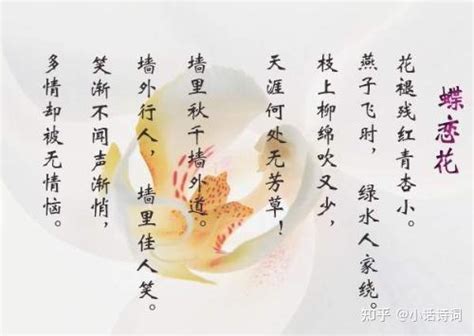 蝶恋花
花褪残红青杏小。
燕子飞时，绿水人家绕。
枝上柳绵吹又少，
天涯何处无芳草！
墙里秋千墙外道。
墙外行人，墙里佳人笑。
笑渐不闻声渐悄，
多情却被无情恼。
知乎 @小话诗词